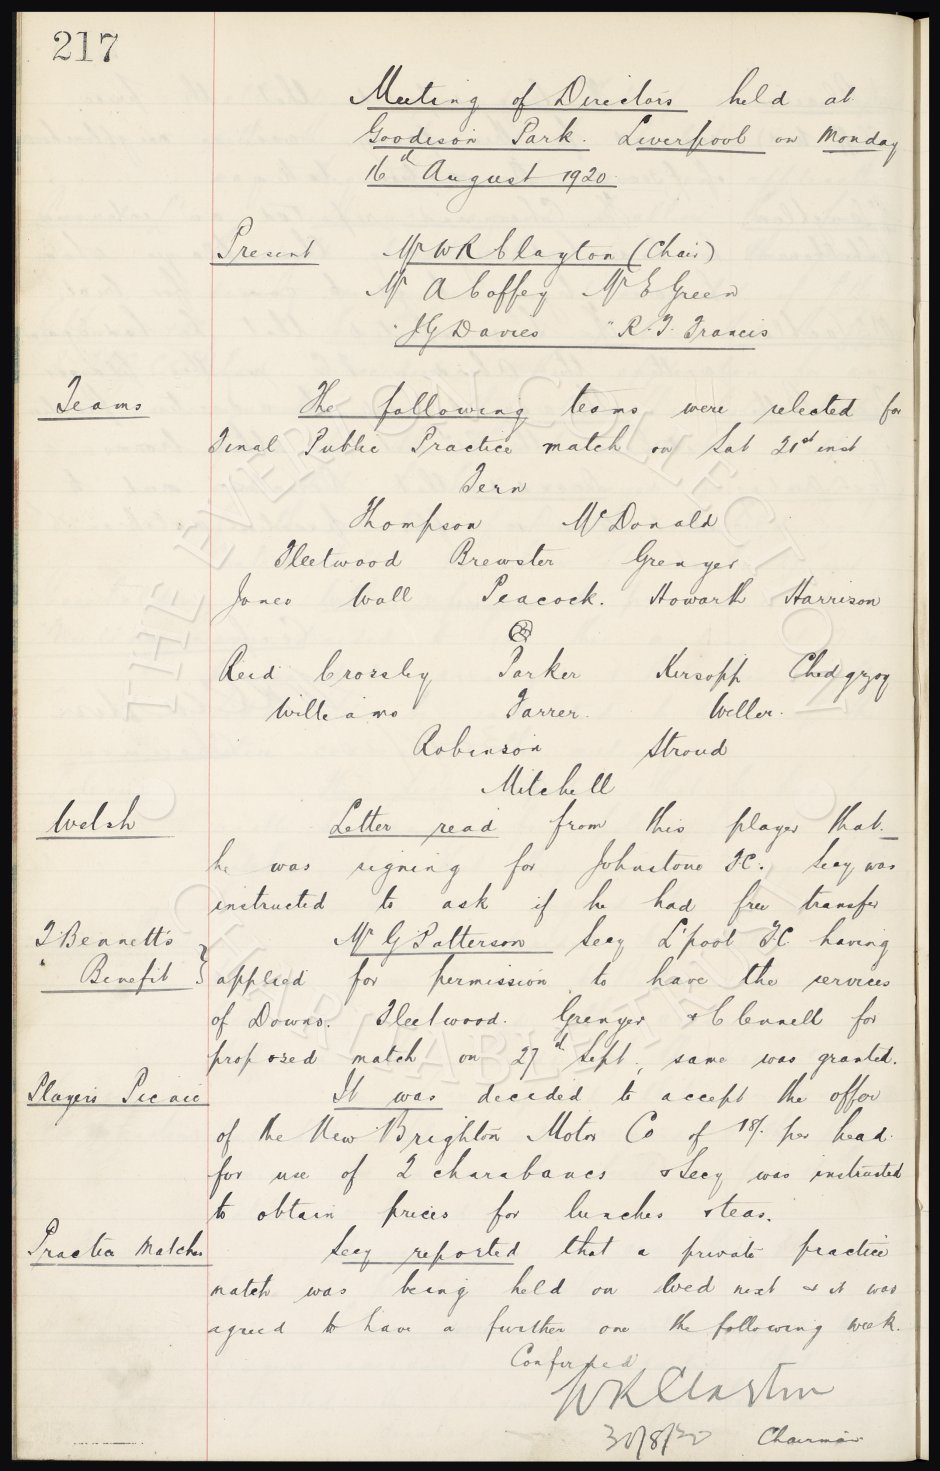 217
Meeting of Directors held at
Goodison Park. Liverpool on Monday
16d August 1920.
Present Mr W R Clayton (Chair)
Mr A Coffey Mr E Green
" J G Davies " R. T. Francis
Teams The following teams were selected for
Final Public Practice match on Sat 21st inst
Fern
Thompson McDonald
Fleetwood Brewster Grenyer
Jones Wall Peacock. Howarth Harrison
Reid Crossley Parker Kirsopp Chedgzoy
Williams Farrer. Weller.
Robinson Stroud
Mitchell
Welsh Letter read from this player that
he was signing for Johnstone F.C. Secy was
instructed to ask if he had free transfer
T Bennett's Mr G Patterson Secy L'pool F C having
" Benefit } applied for permission to have the services
of Downs. Fleetwood. Grenyer & C Cennell for
proposed match on 27d Sept, same was granted.
Players Picnic It was decided to accept the offer
of the New Brighton Motor Co of 18/. per head
for use of 2 charabancs & Secy was instructed
to obtain prices for lunches & teas.
Practice Matches Secy reported that a private practice
match was being held on Wed next & it was
agreed to have a further one the following week.
Confirmed
W R Clayton
30/8/20 Chairman
THE EVERTON COLLECTION
CHARITABLE TRUST